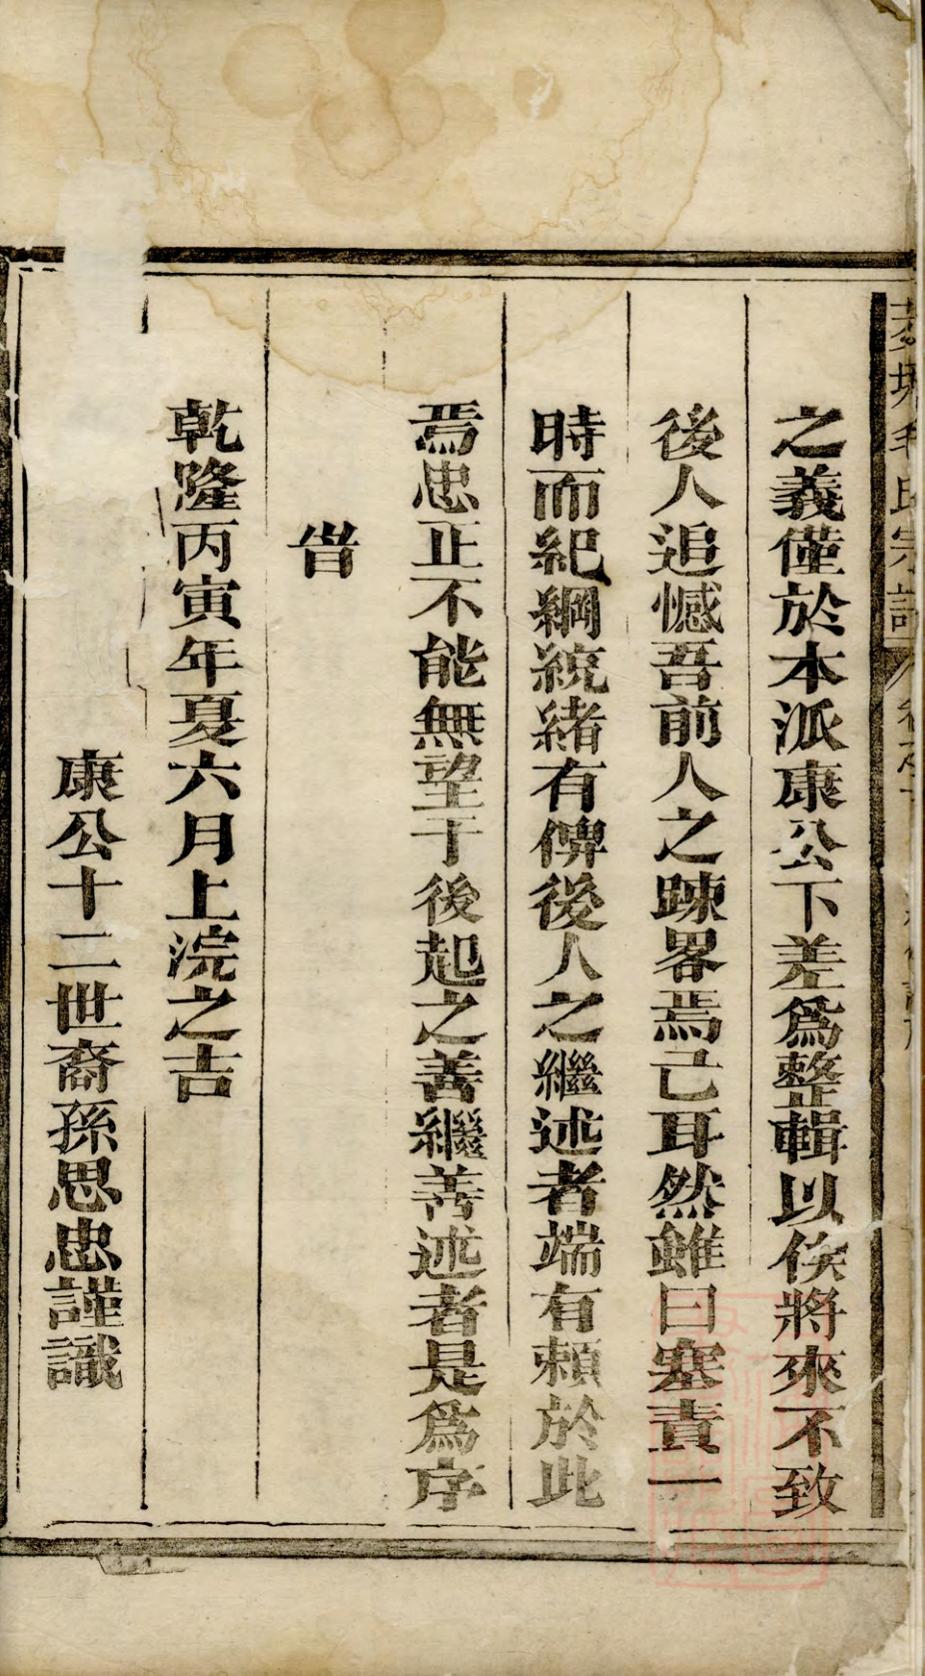 毛氏宗譜
之義僅於本派康公下差爲整輯以俟將來不致
後人追憾吾前人之踈畧焉已耳然雖曰塞責一
時而紀綱統緒有俾後人之繼述者端有頼於此
焉忠正不能無望于後起之善繼善述者是爲序
旹
乾隆丙寅年夏六月上浣之吉
康公十二世裔孫思忠謹識